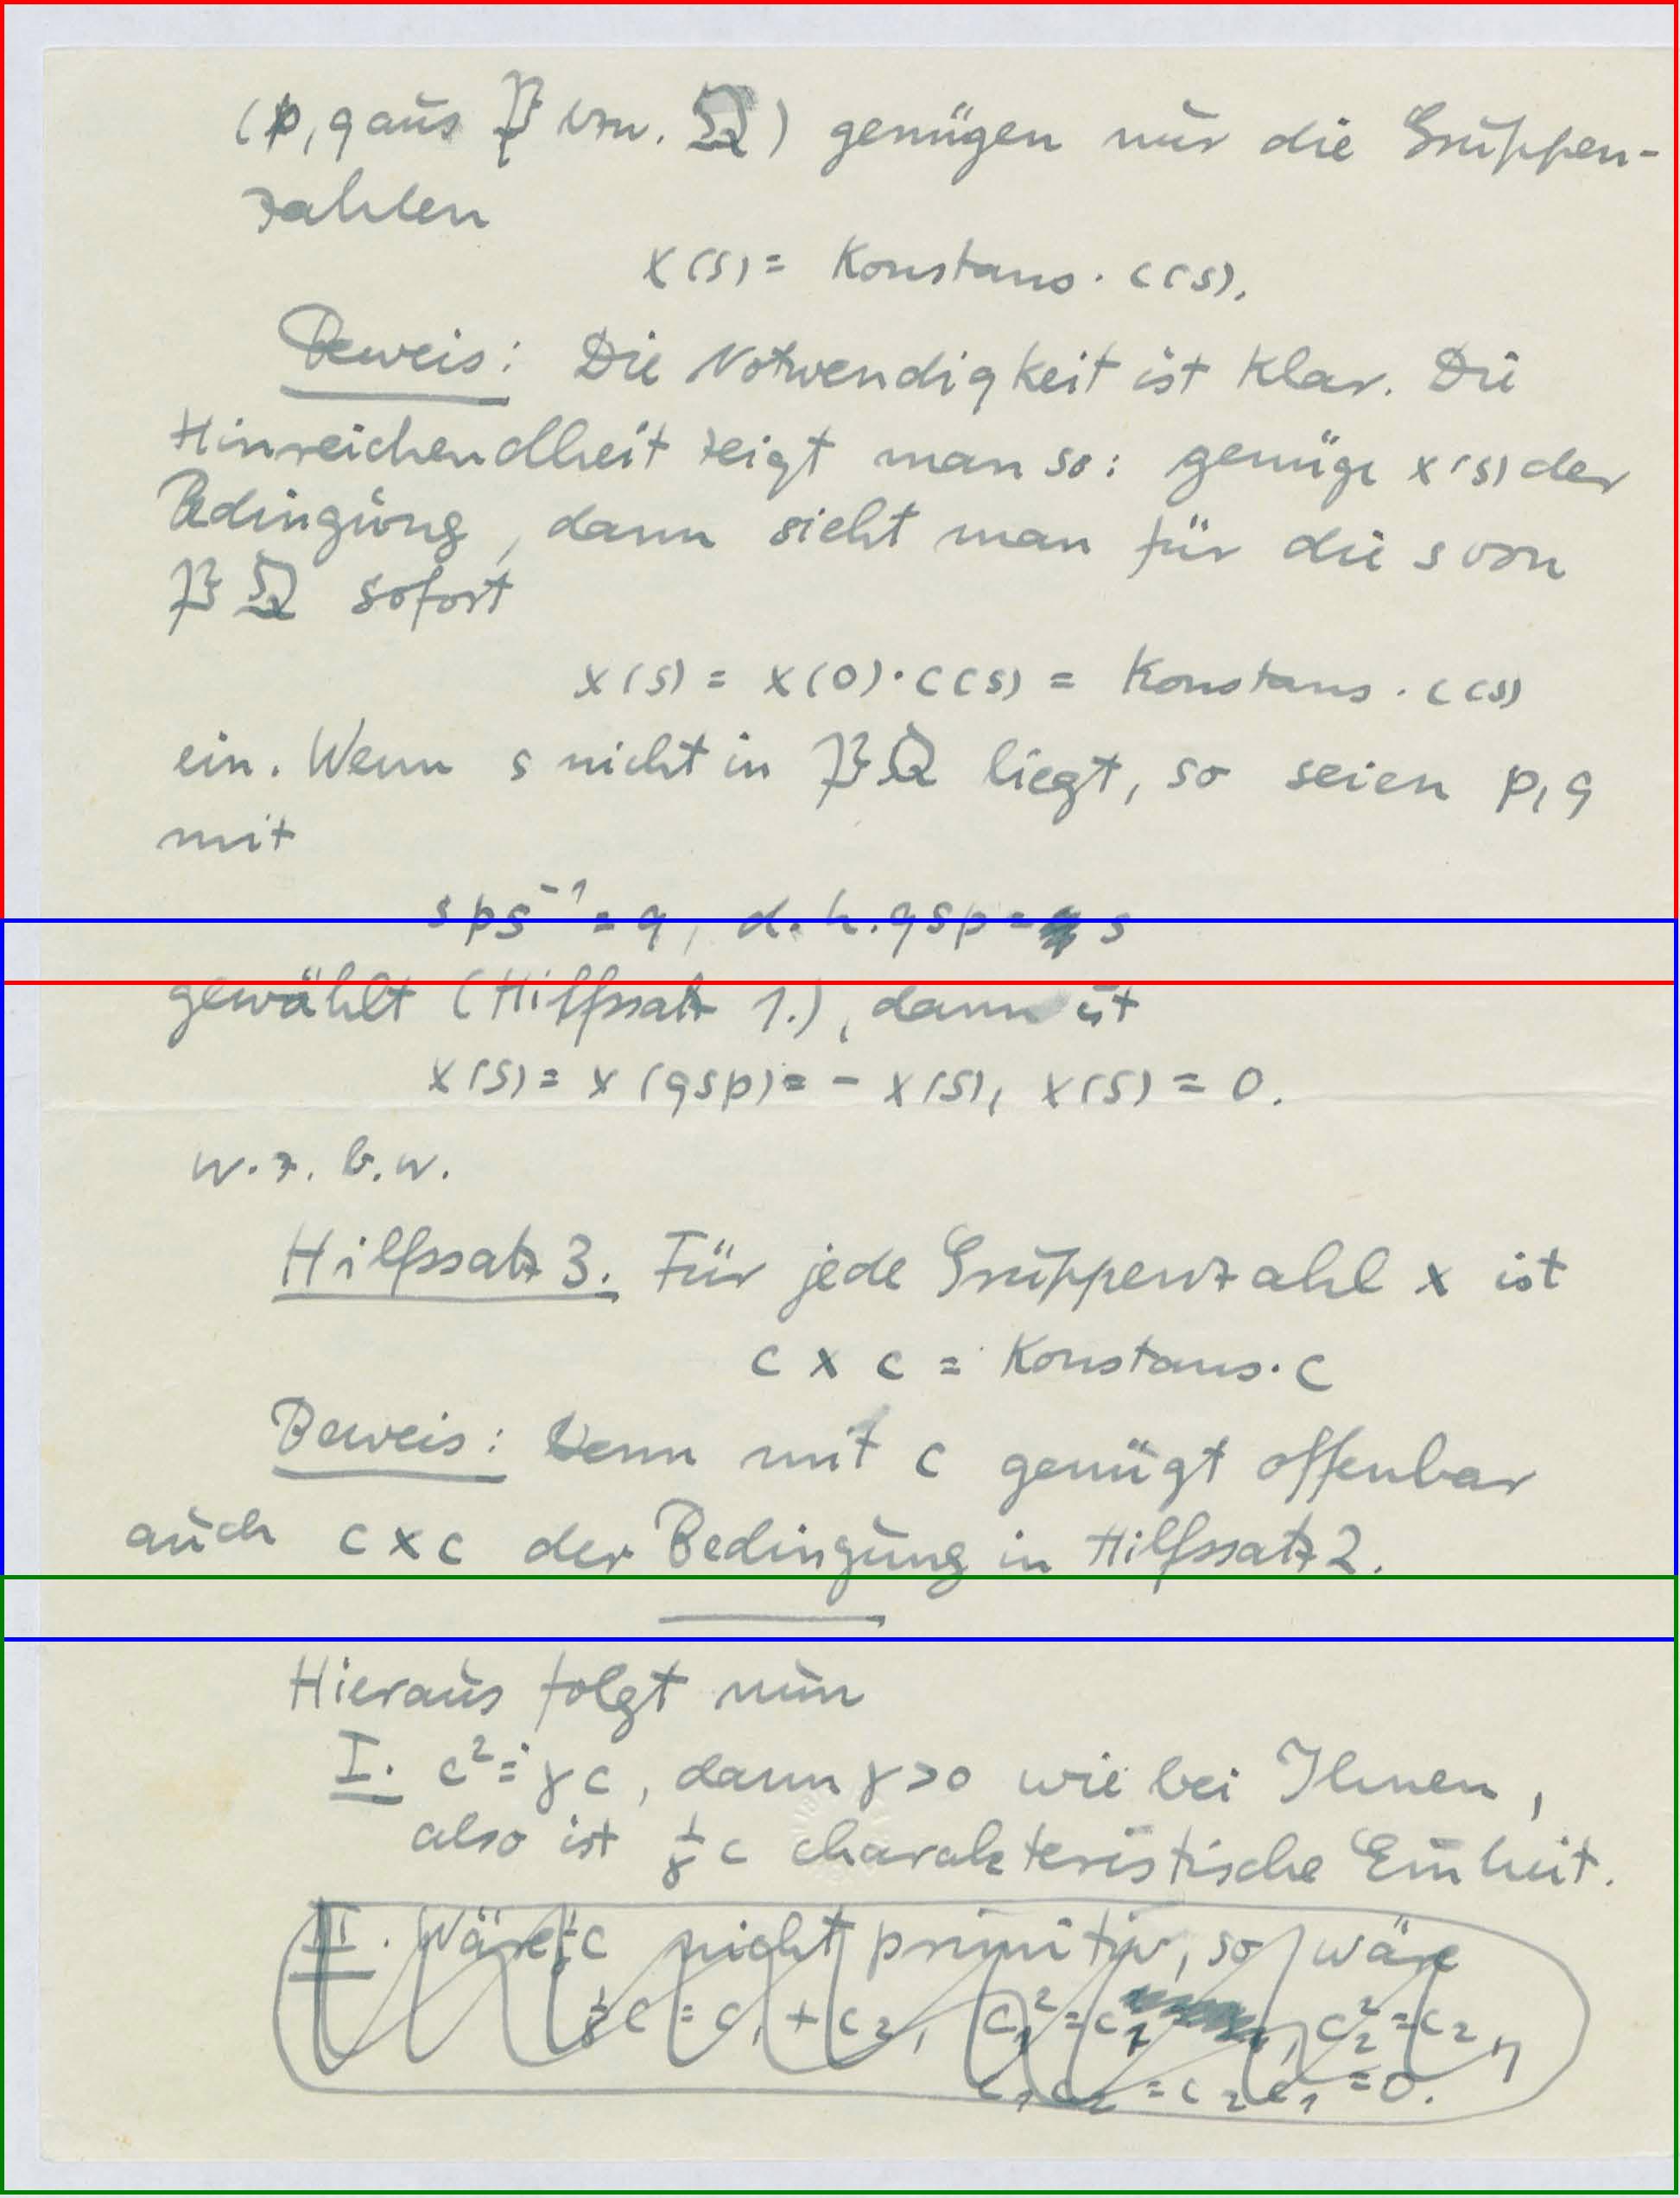 (p, q aus 𝔓 bzw. 𝔔) genügen nur die Gruppen-
zahlen
x(s) = Konstans · c(s).
Beweis: Die Notwendigkeit ist klar. Die
Hinreichendheit zeigt man so: genüge x(s) der
Bedingung, dann sieht man für die s von
𝔓𝔔 sofort
x(s) = x(0)·c(s) = Konstans · c(s)
ein. Wenn s nicht in 𝔓𝔔 liegt, so seien p, q
mit
sps⁻¹ = q, d.h. qsp = s
gewählt (Hilfssatz 1.), dann ist
x(s) = x(qsp) = - x(s), x(s) = 0.
w.z.b.w.
Hilfssatz 3. Für jede Gruppenzahl x ist
c x c = Konstans · c
Beweis: Denn mit c genügt offenbar
auch c x c der Bedingung in Hilfssatz 2.
Hieraus folgt nun
I. c² = γc, dann γ>0 wie bei Ihnen,
also ist 1/γ c charakteristische Einheit.
II. Wäre 1/γ c nicht primitiv, so wäre
1/γ c = c₁ + c₂, c₁² = c₁, c₂² = c₂,
c₁c₂ = c₂c₁ = 0.